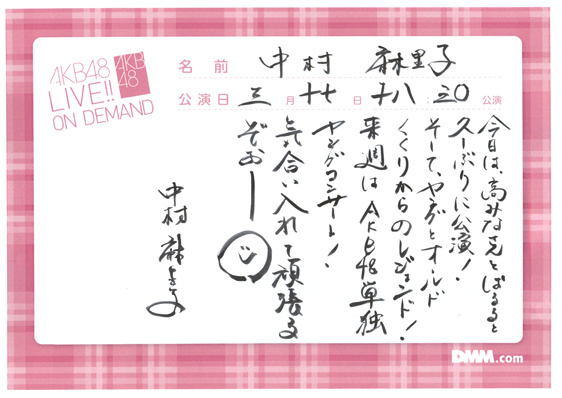 AKB48
LIVE!!
ON DEMAND
AKB
48
名前 中村 麻里子
公演日 三月十七日 十八:30 公演
今日は、高みなさんとぱるると
久〜ぶりに公演!
そして、ヤングとオールド
くくりからのレジェンド!
来週はAKB48単独
ヤングコンサート!
気合い入れて頑張る
ぞおー
中村麻里子
DMM.com